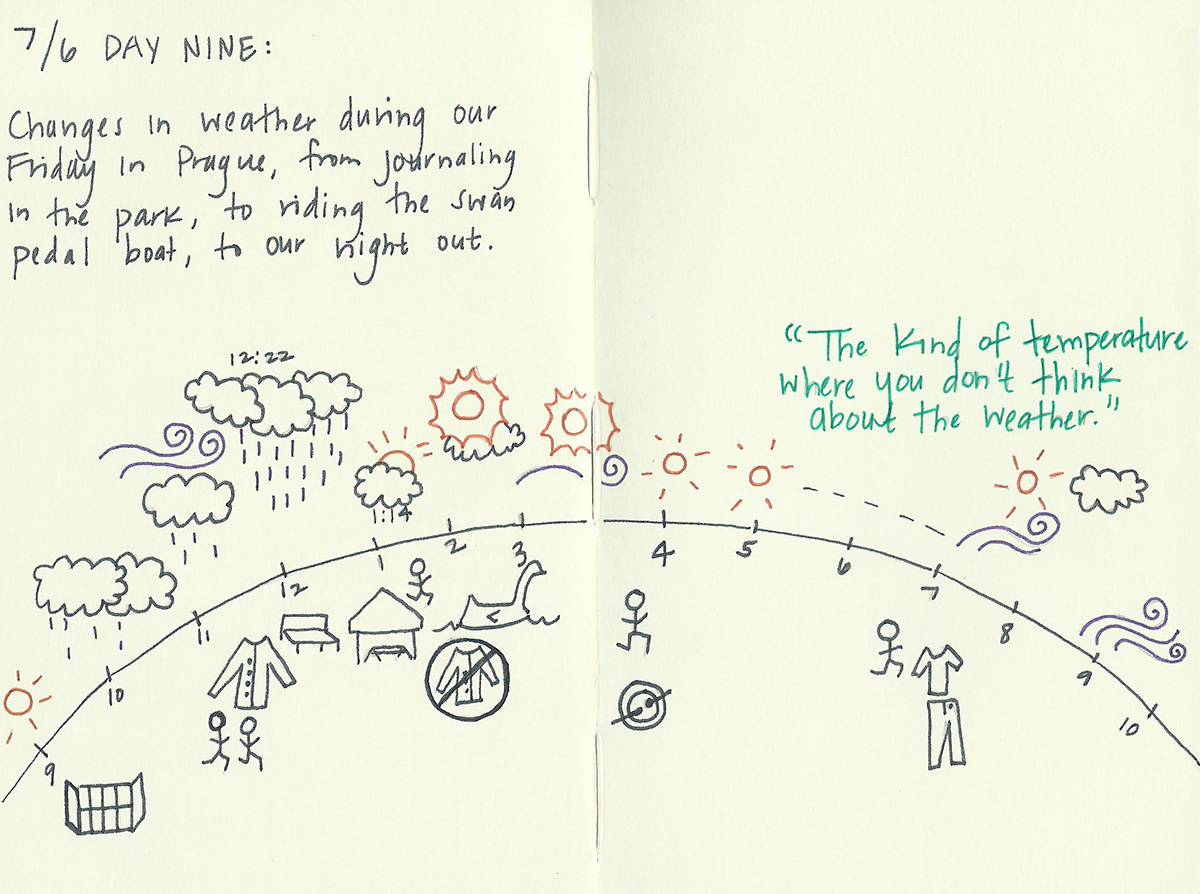 7/6 DAY NINE:
Changes in weather during our
Friday in Prague, from journaling
in the park, to riding the swan
pedal boat, to our night out.
"The kind of temperature
where you don't think
about the weather."
12:22
1:14
9
10
11
12
1
2
3
4
5
6
7
8
9
10